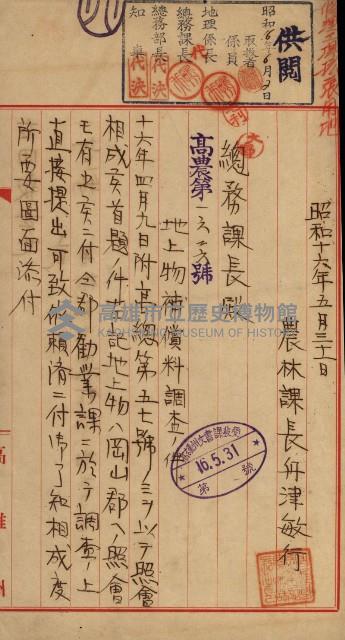 供閲
昭和16年6月2日
取扱者
係員
地理係長
總務課長
總務部長
知事
代決
昭和十六年五月三十一日
農林課長 舟津敏行
總務課長殿
高農第一六一六號
地上物補償料調査ノ件
十六年四月九日附高總第五七號ヲ以テ照會
相成候首題ノ件右記地上物ハ岡山郡ヘノ照會
モ有之候ニ付仝郡勸業課ニ於テ調査ノ上
直接提出可致依賴濟ニ付御了知相成度
所要圖面添付
高雄州文書課收受
16.5.31
第 號
高雄市立歷史博物館
KAOHSIUNG MUSEUM OF HISTORY
高雄州